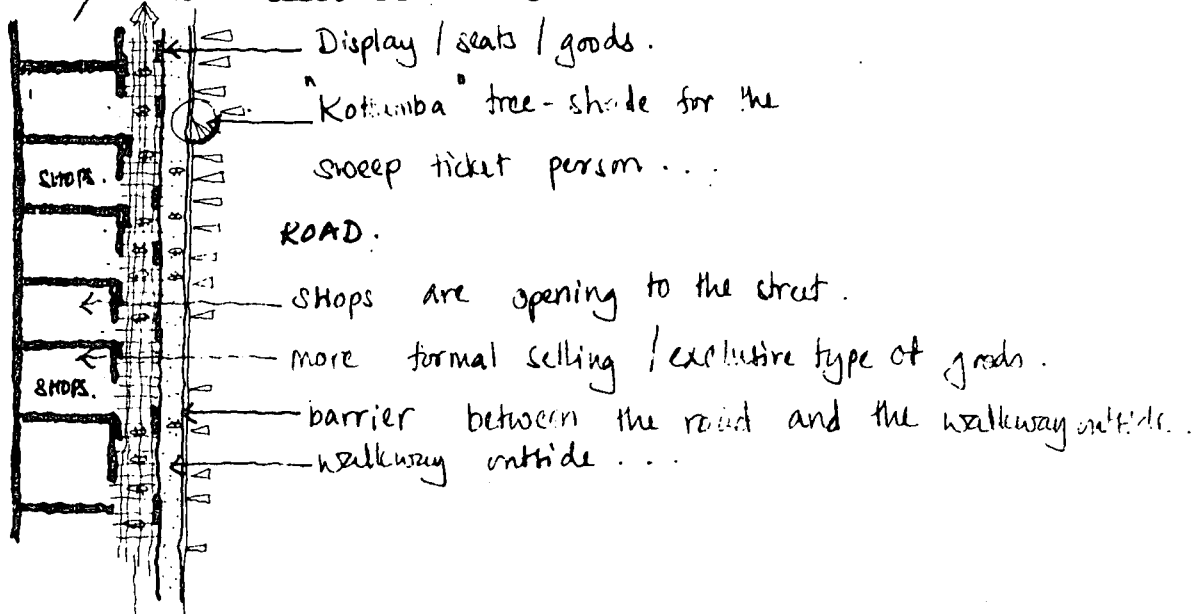 Display / seats / goods.
"Kottamba" tree - shade for the
sweep ticket person ...
SHOPS.
ROAD.
SHOPS are opening to the street.
more formal selling / exclusive type of goods.
SHOPS.
barrier between the road and the walkway outside..
walkway outside ...